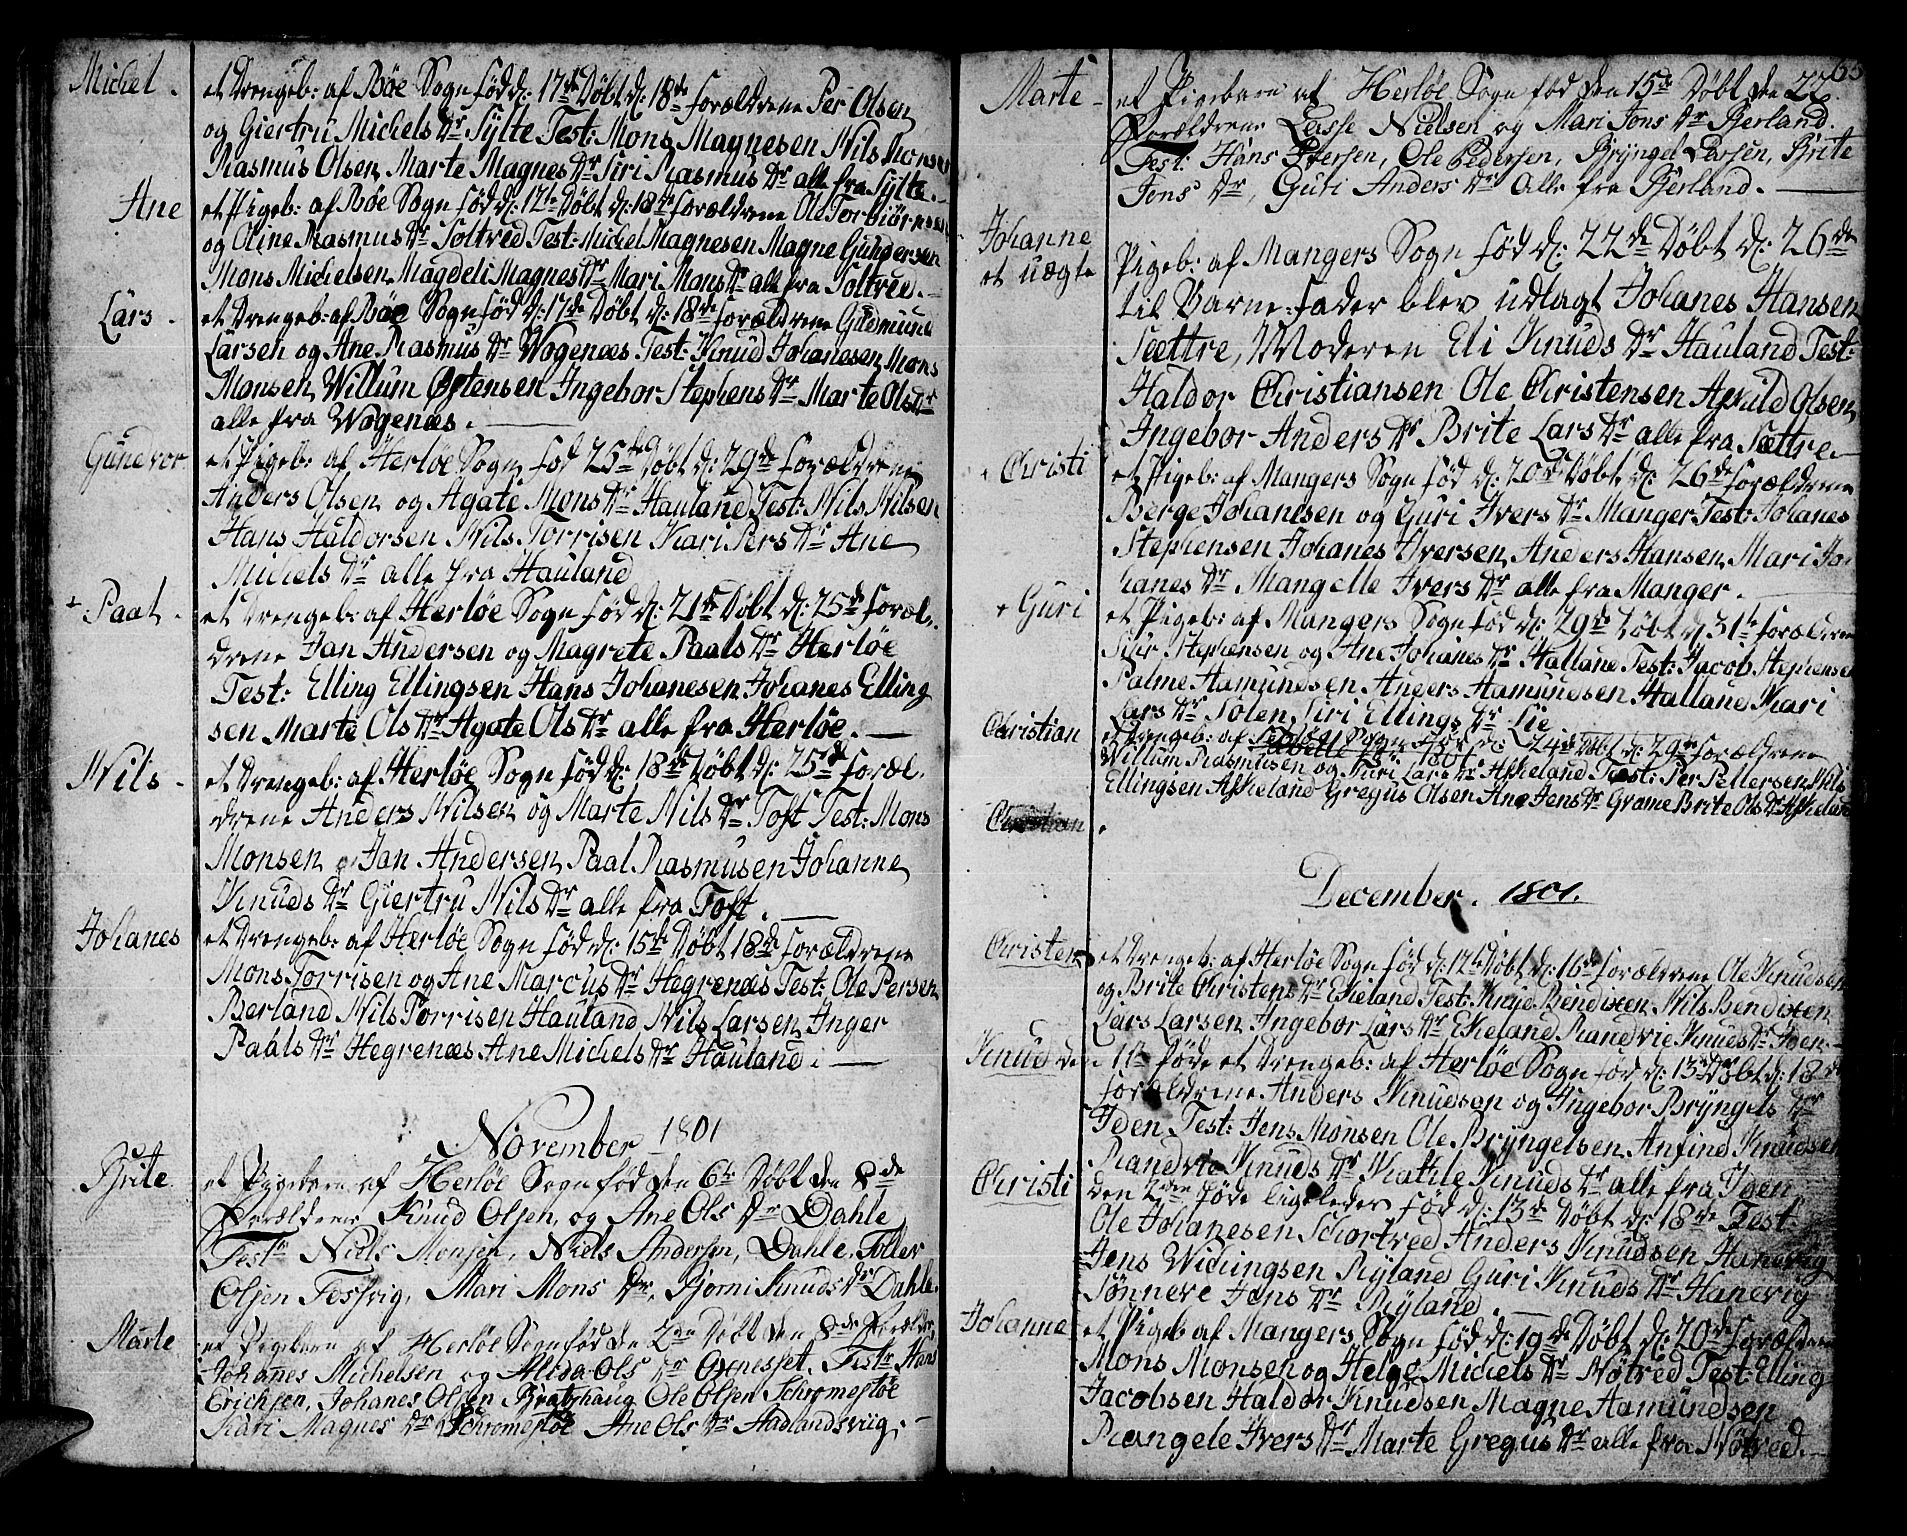 Michel. et Drengeb: af Bøe Sogn fød d: 17de Døbt d: 18de forældrene Per Olsen
og Giertru Michels Dr Sylte Test: Mons Magnesen Nils Monsen
Rasmus Olsen Marte Magnes Dr Siri Rasmus Dr alle fra Sylte.
Ane et Pigeb: af Bøe Sogn fød d: 12te Døbt d: 18de forældrene Ole Torbiørnsen
og Oline Rasmus Dr Soltved Test: Michel Magnesen Magne Gundersen
Mons Michelsen Magdeli Magnes Dr Mari Mons Dr alle fra Soltved.
Lars. et Drengeb: af Bøe Sogn fød d: 17de Døbt d: 18de forældrene Gudmund
Larsen og Ane Rasmus Dr Wogenæs Test: Knud Johanesen Mons
Monsen Willum Østensen Ingebor Stephens Dr Marte Ols Dr
alle fra Wogenæs.
Gundvor et Pigeb: af Herløe Sogn fød 25de Døbt d: 29de forældrene
Anders Olsen og Agate Mons Dr Hauland Test: Nils Nilsen
Hans Haldorsen Nils Torrisen Kari Pers Dr Ane
Michels Dr alle fra Hauland
Paal. et Drengeb: af Herløe Sogn fød d: 21de Døbt d: 25de foræl-
drene Jan Andersen og Magrete Paals Dr Herløe
Test: Elling Ellingsen Hans Johanesen Johanes Elling
sen Marte Ols Dr Agate Ols Dr alle fra Herløe.
Nils. et Drengeb: af Herløe Sogn fød d: 18de Døbt d: 25de foræl-
drene Anders Nilsen og Marte Nils Dr Toft Test: Mons
Monsen Jan Andersen Paal Rasmusen Johanne
Knuds Dr Giertru Nils Dr alle fra Toft.
Johanes et Drengeb: af Herløe Sogn fød d: 15de Døbt 18de forældrene
Mons Torrisen og Ane Marcus Dr Hegrenæs Test: Ole Persen
Berland Nils Torrisen Hauland Nils Larsen Inger
Paals Dr Hegrenæs Ane Michels Dr Hauland.
November 1801
Brite et Pigebarn af Herløe Sogn fød den 6te Døbt den 8de
Forældrene Knud Olsen, og Ane Ols Dr Dahle
Test: Niels Monsen, Niels Andersen, Dahle, Toller
Olsen Fosvig, Mari Mons Dr, Bjorni Knuds Dr Dahle.
Marte et Pigebarn af Herløe Sogn fød den 2den Døbt den 8de Forældr:
Johanes Michelsen og Alida Ols Dr Oxnesset. Test: Hans
Erichsen, Johanes Olsen Bratshaug Ole Olsen Schromestøe
Kari Magnes Dr Schromestøe Ane Ols Dr Aadlandsviig.
65
Marte et Pigebarn af Herløe Sogn fød den 15de Døbt den 22de
Forældrene Lasse Nielsen og Mari Jons Dr Bierland.
Test: Hans Iversen, Ole Pedersen, Bryngel Larsen, Brite
Jons Dr, Guri Anders Dr Alle fra Bierland.
Johanne
et uægte Pigeb: af Mangers Sogn fød d: 22de Døbt d: 26de
til Barne-fader blev udlagt Johanes Hansen
Sættre, Moderen Eli Knuds Dr Hauland Test:
Haldor Christiansen Ole Christensen Askild Olsen
Ingebor Anders Dr Brite Lars Dr alle fra Sættre.
Christi et Pigeb: af Mangers Sogn fød d: 20de Døbt d: 26de forældrene
Berge Johanesen og Guri Ivers Dr Manger Test: Johanes
Stephensen Johanes Iversen Anders Hansen Mari Jo-
hanes Dr Mangelle Ivers Dr alle fra Manger.
Guri et Pigeb: af Mangers Sogn fød d: 29de Døbt d: 31te forældrene
Siur Stephensen og Ane Johanes Dr Halland Test: Jacob Stephensen
Palme Aamundsen Anders Aamundsen Halland Kari
Lars Dr Solen Siri Ellings Dr Lie
Christian et Drengeb: af Sogn fød d: 24de Døbt d: 29de forældrene
Willum Rasmusen og Turi Lars Dr Askeland Test: Per Pettersen Nils
Ellingsen Askeland Gregus Olsen Ane Jens Dr Grame Brite Ols Dr Askeland
Christian
December. 1801.
Christen et Drengeb: af Herløe Sogn fød d: 12te Døbt d: 16de forældrene Ole Knudsen
og Brite Christens Dr Ekeland Test: Knud Bendixen Nils Bendixen
Lars Larsen Ingebor Lars Dr Ekeland Randvie Knuds Dr Iden.
Knud den 1te føde et Drengeb: af Herløe Sogn fød d: 13de Døbt d: 18de
forældrene Anders Knudsen og Ingebor Bryngels Dr
Iden Test: Jens Monsen Ole Bryngelsen Anfind Knudsen
Randvie Knuds Dr Matile Knuds Dr alle fra Iden
Christi den 2den føde ligeledes fød d: 13de Døbt d: 18de Test:
Ole Johanesen Schortved Anders Knudsen Hanevig
Jens Wichingsen Ryland Guri Knuds Dr Hanevig
Sønneve Jens Dr Ryland.
Johanne et Pigeb af Mangers Sogn fød d: 19de Døbt d: 20de forældrene
Mons Monsen og Helge Michels Dr Nøtved Test: Elling
Jacobsen Haldor Knudsen Magne Aamundsen
Rangele Ivers Dr Marte Gregus Dr alle fra Nøtved.